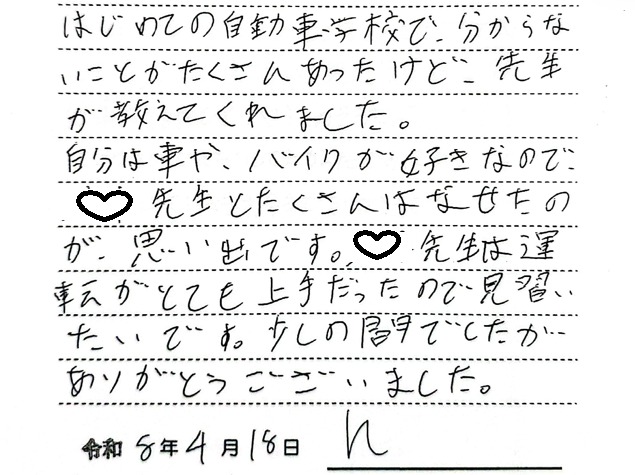 はじめての自動車学校で、分からな
いことがたくさんあったけど、先生
が教えてくれました。
自分は車や、バイクが好きなので、
♡先生とたくさんはなせたの
が、思い出です。♡先生は運
転がとても上手だったので見習い
たいです。少しの間でしたが
ありがとうございました。
令和8年4月18日 n